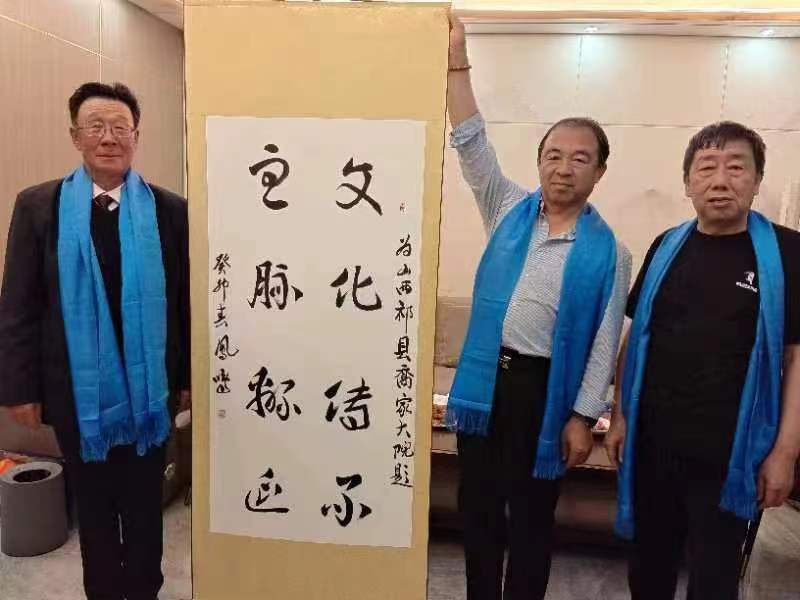 为山西祁县喬家大院题
文化传承
血脉绵延
癸卯春凤